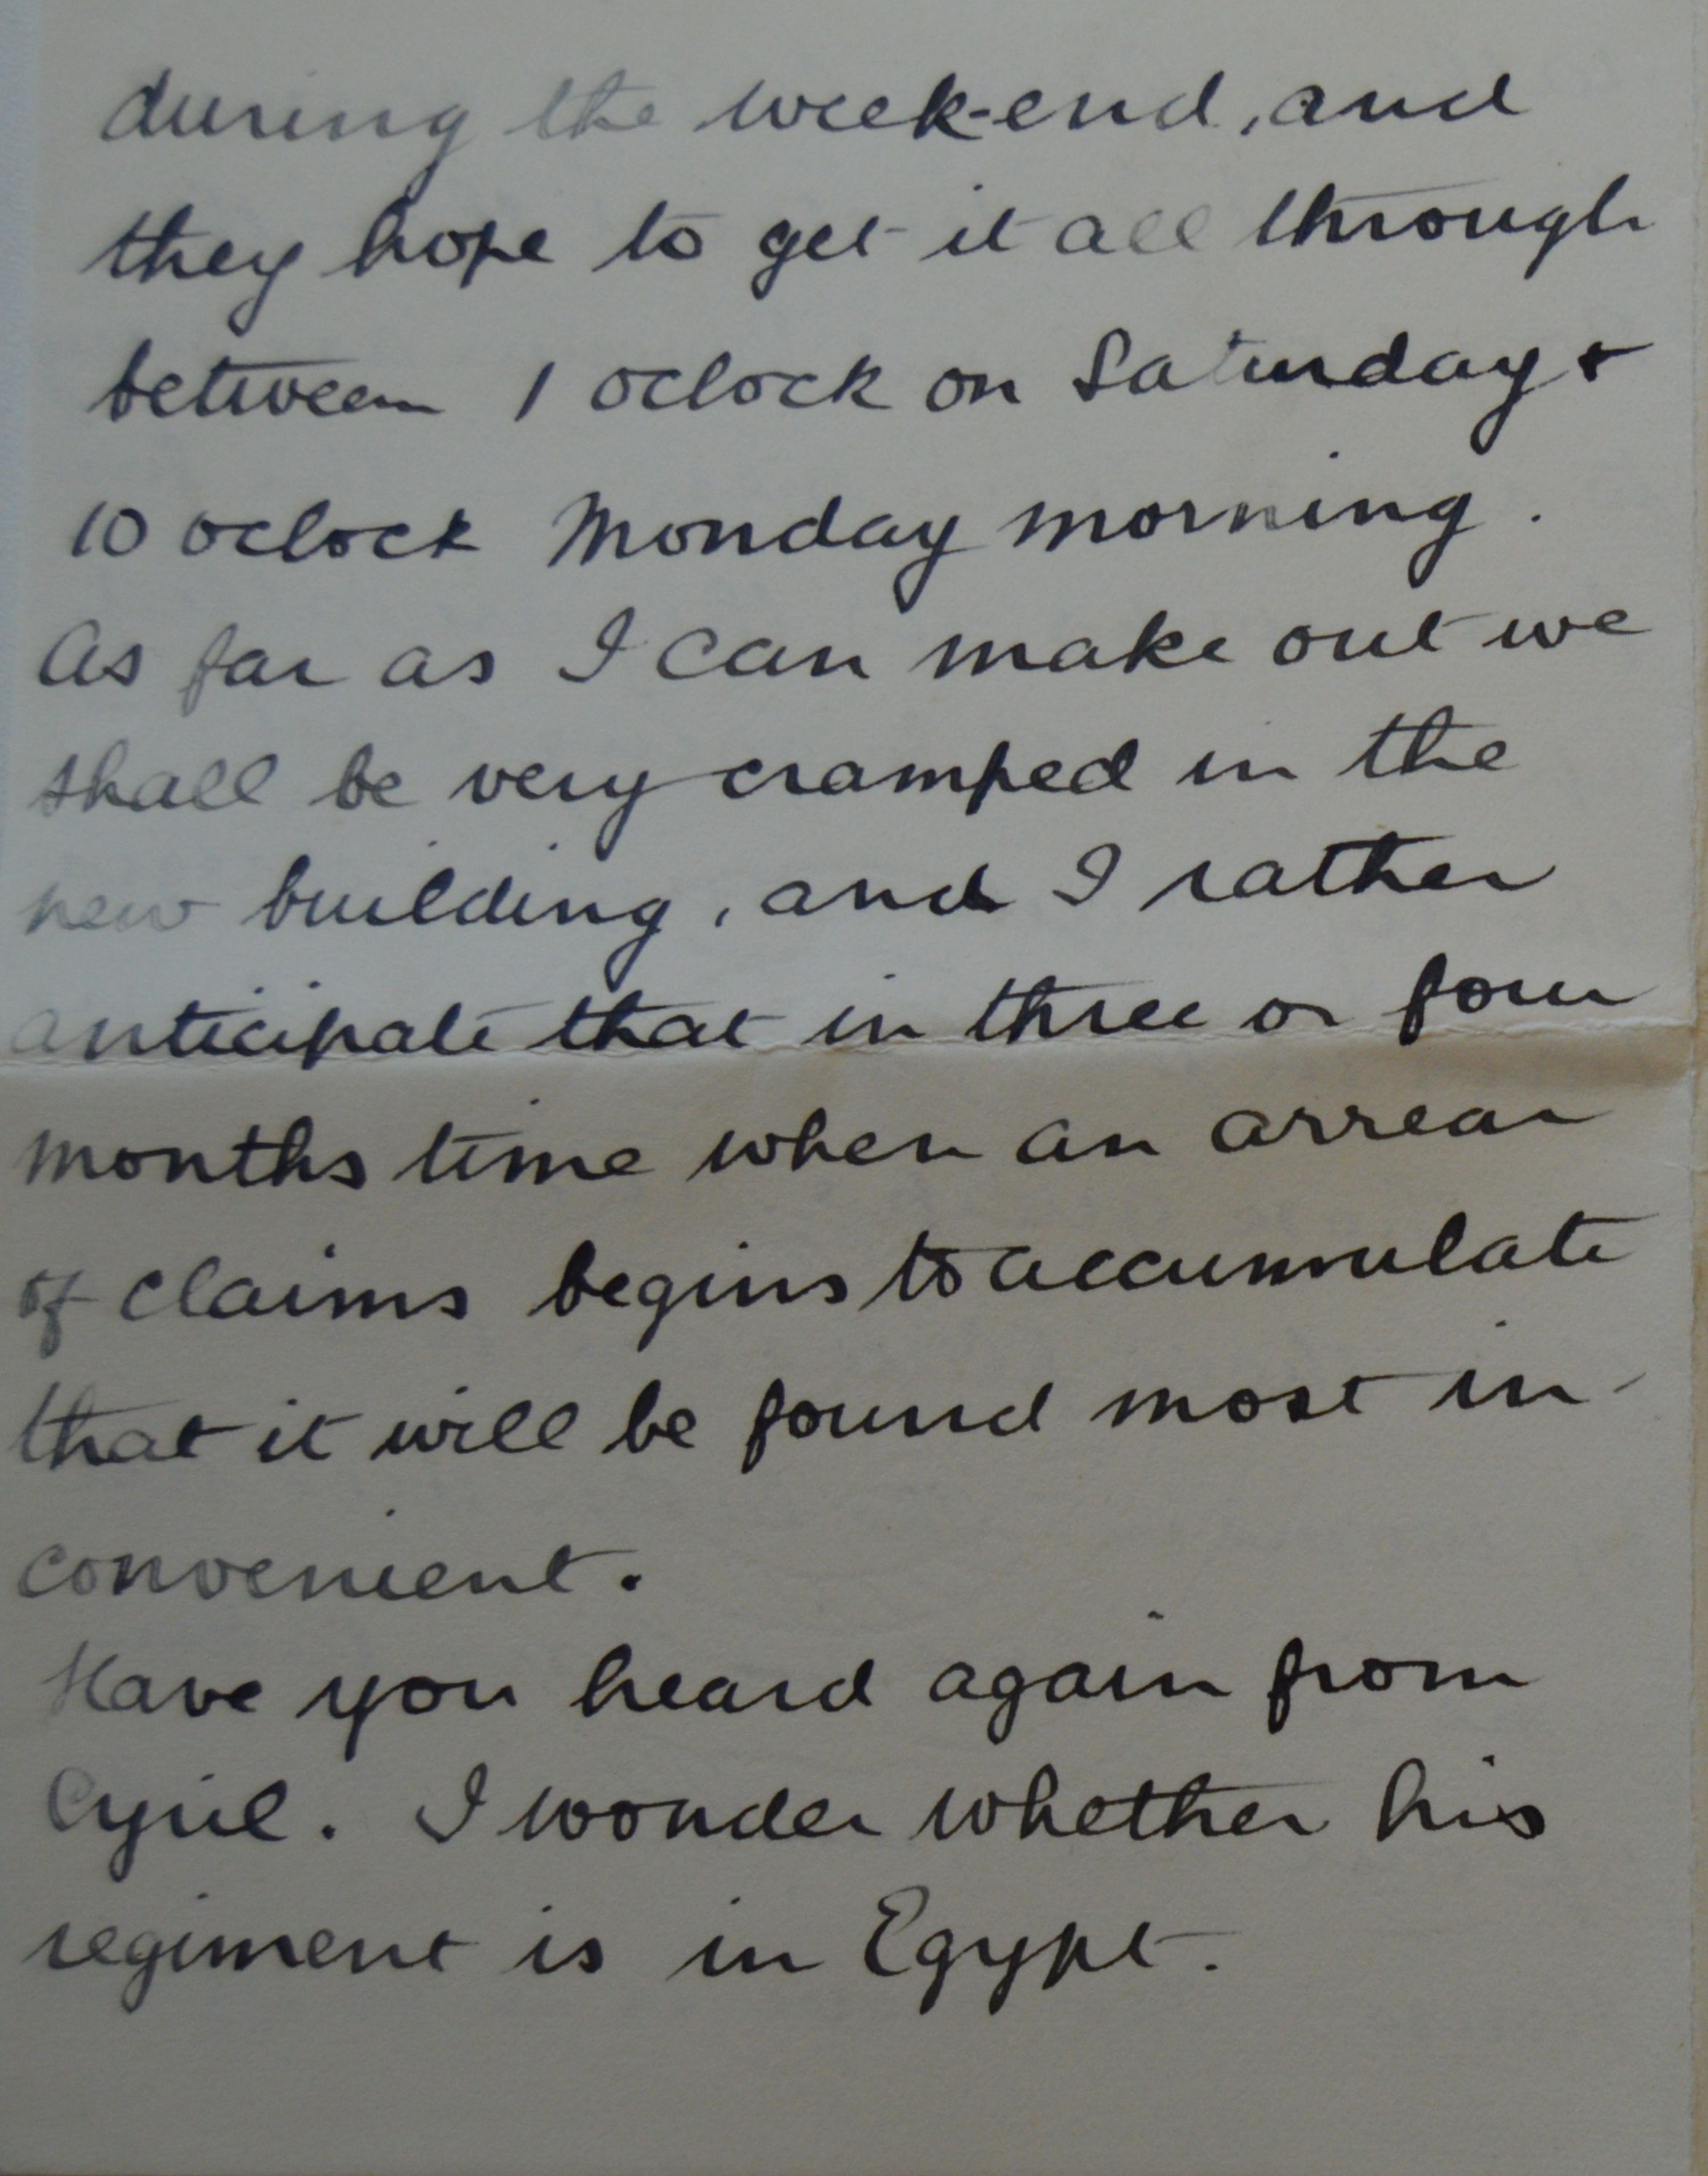 during the week-end, and
they hope to get it all through
between 1 oclock on Saturday +
10 oclock Monday morning.
As far as I can make out we
shall be very cramped in the
new building, and I rather
anticipate that in three or four
months time when an arrear
of claims begins to accumulate
that it will be found most in-
convenient.
Have you heard again from
Cyril. I wonder whether his
regiment is in Egypt.